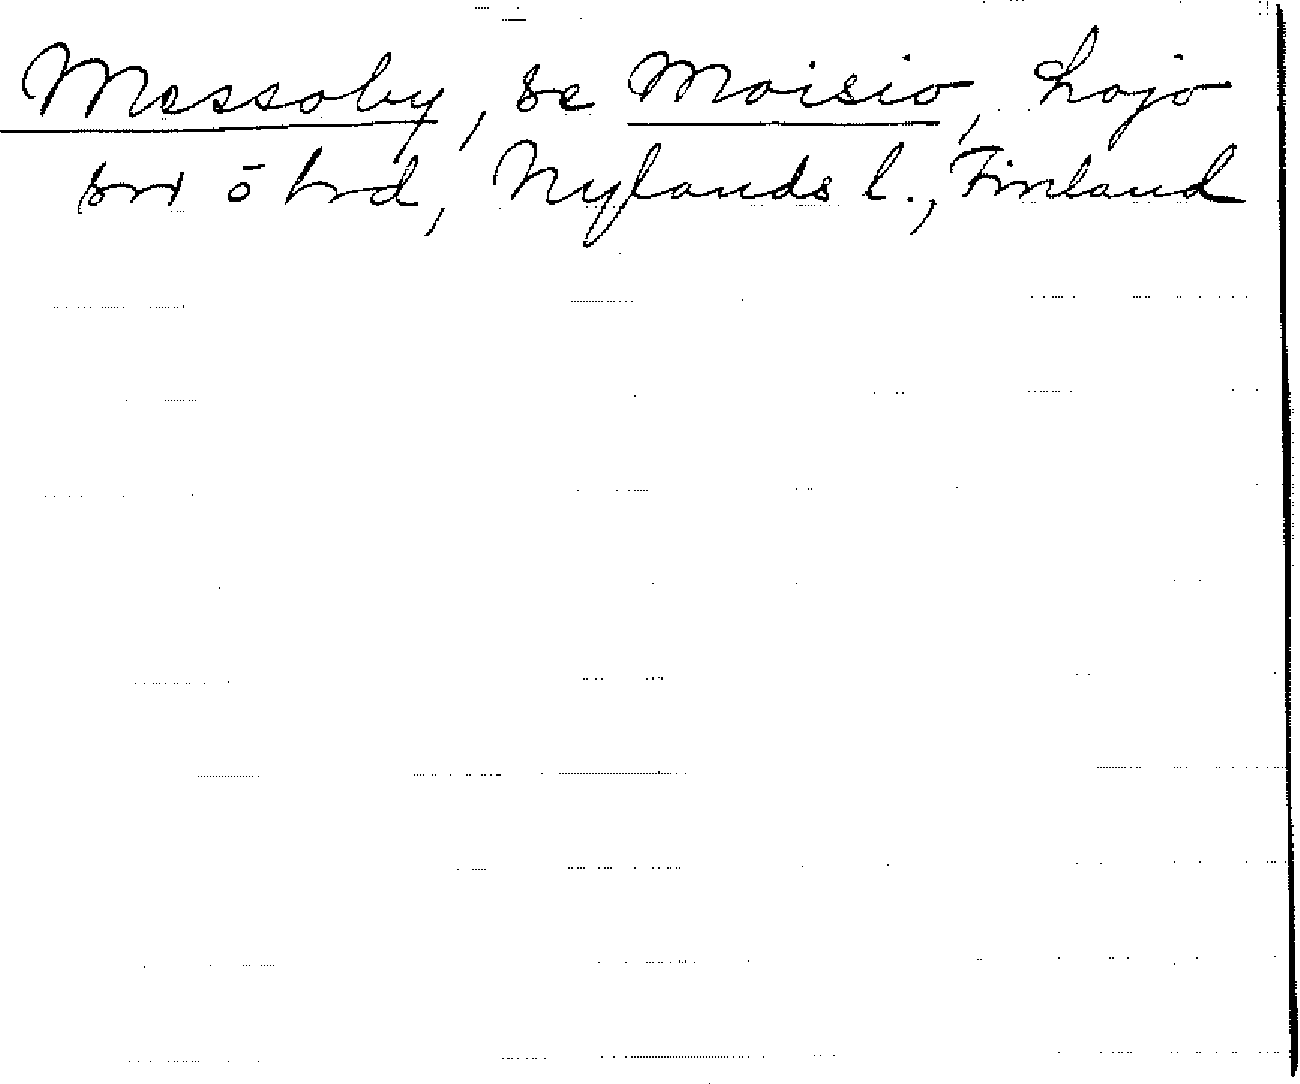 Messoby, se Moisio, Lojo
sn o hrd, Nylands l., Finland